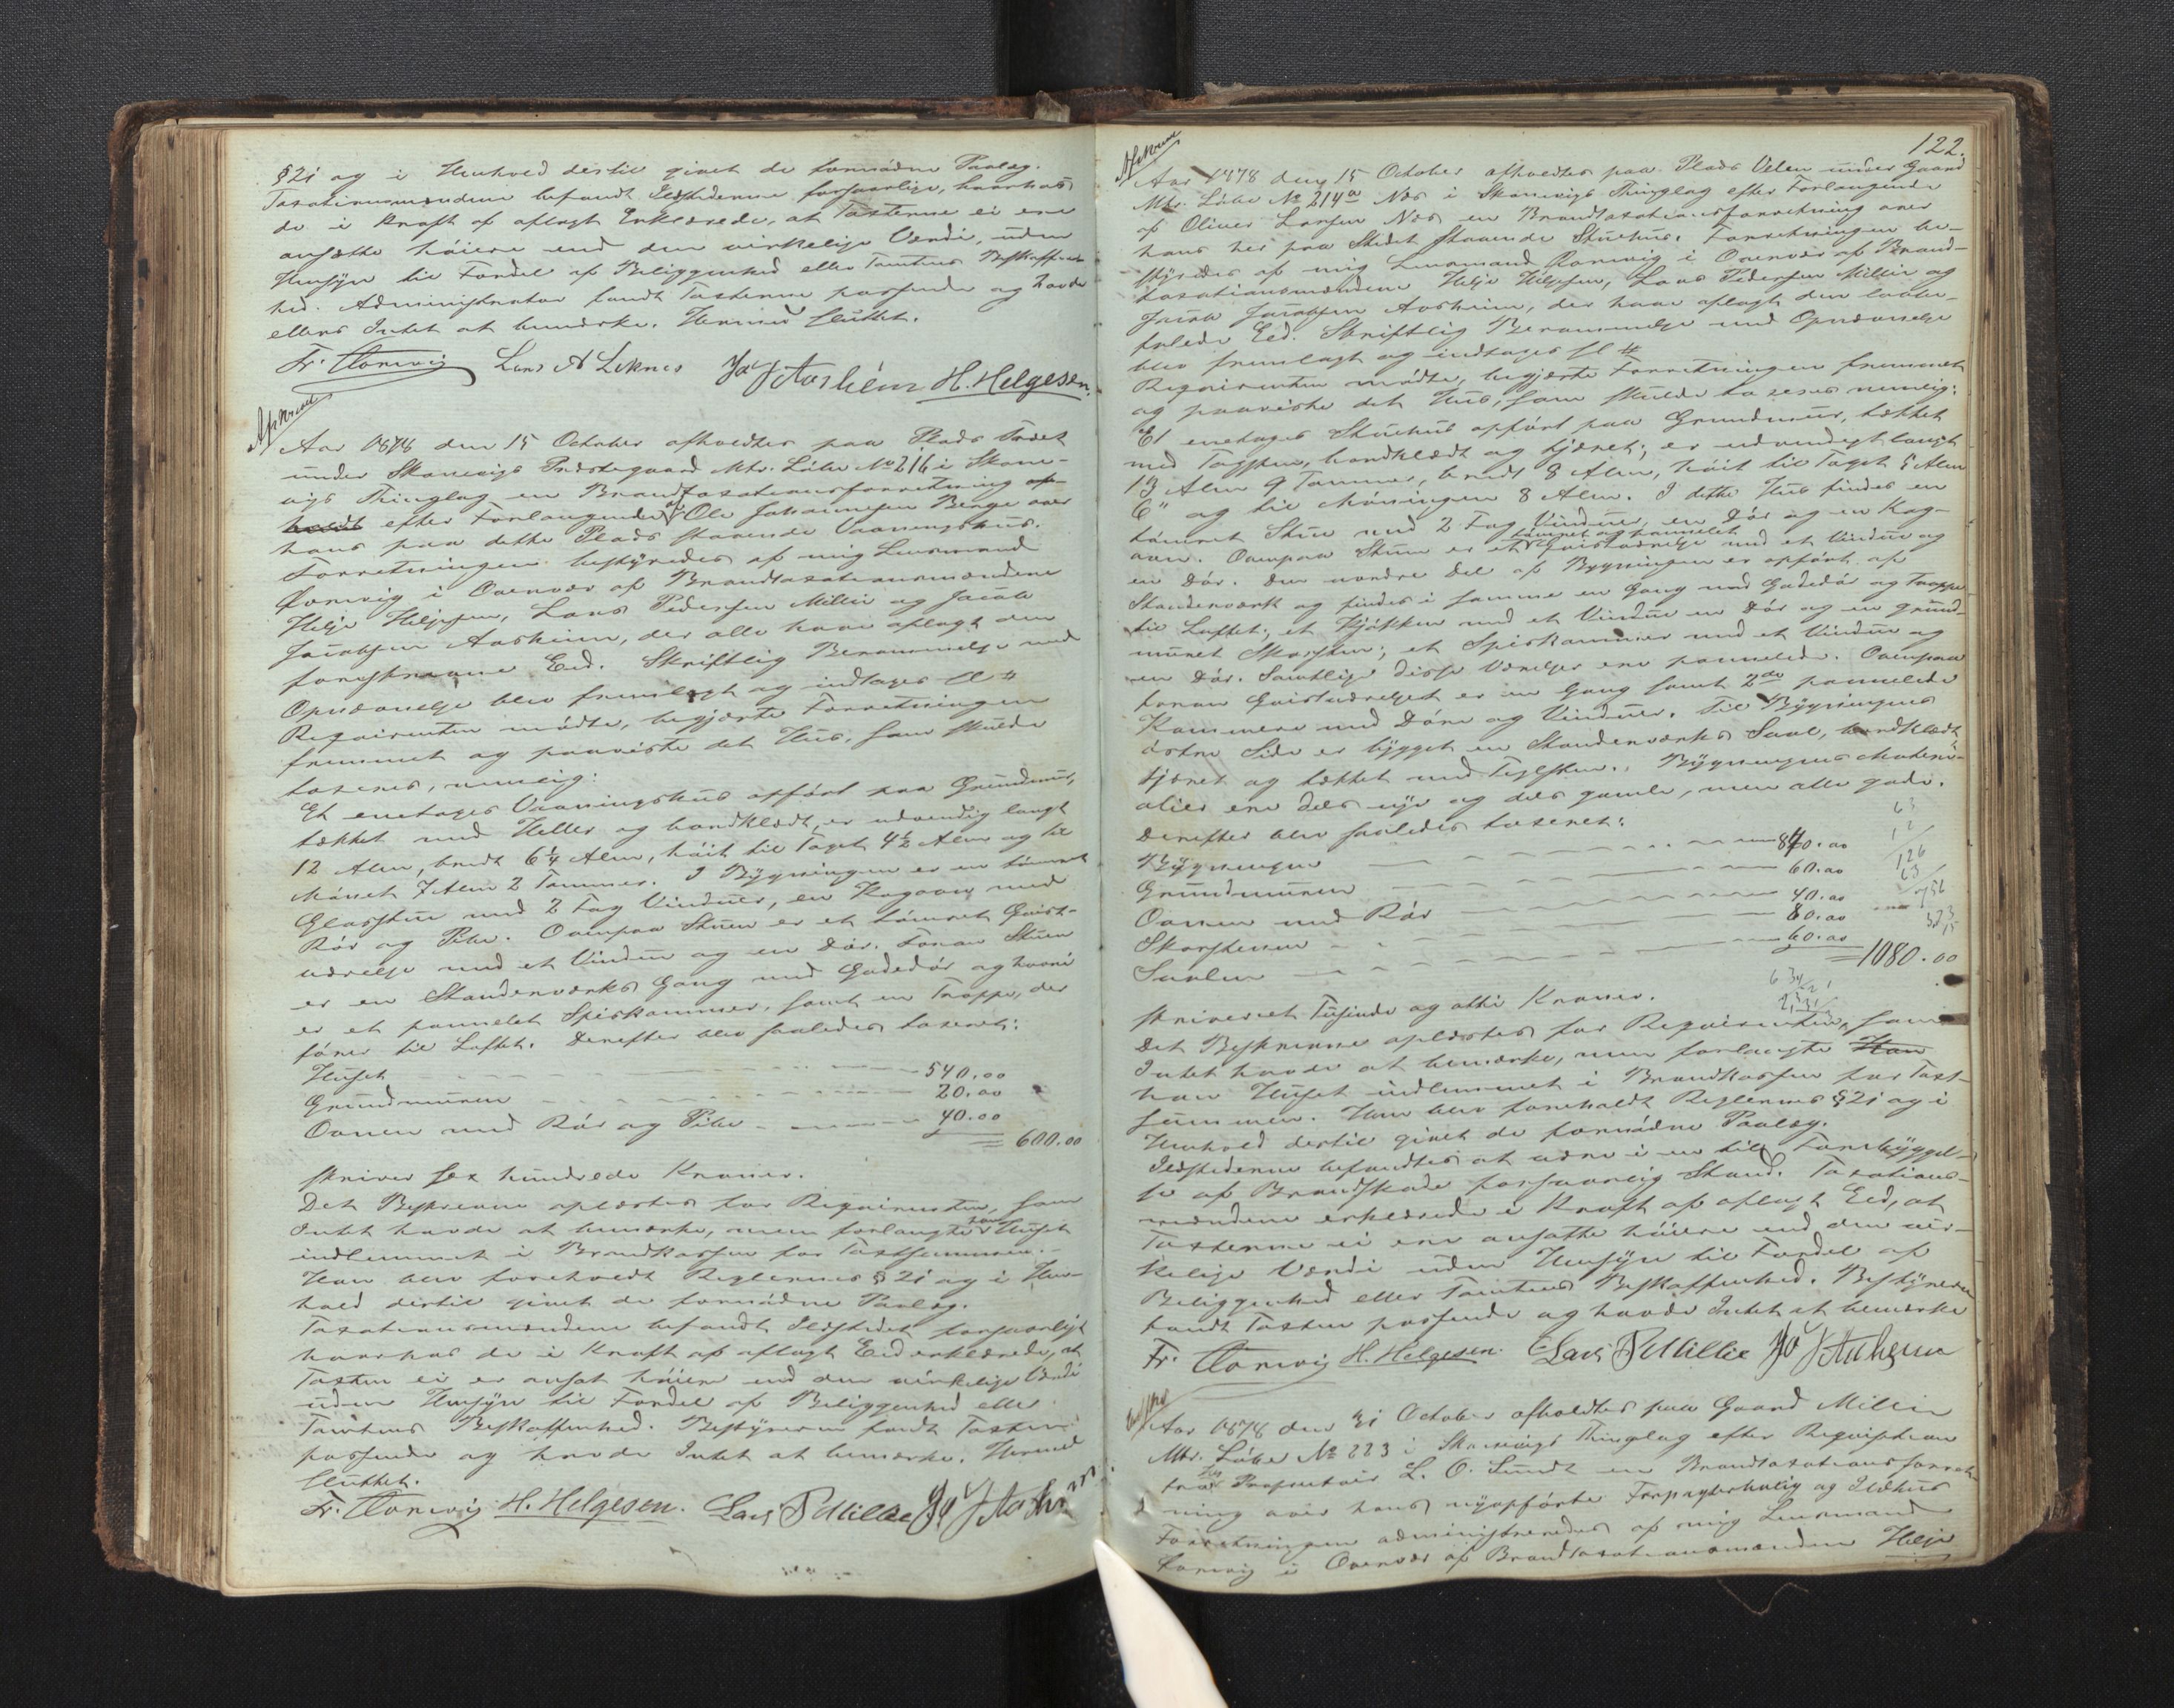 § 21 og i Henhold dertil givet de fornødne Paalæg.
Taxationsmændene befandt Ildstederne forsvarlige, hvorhos
de i Kraft af aflagt Eed erklærede, at Taxterne ei ere
ansatte høiere end den virkelige Værdi, uden
Hensyn til Fordel af Beliggenhed eller Tomtens Beskaffen-
hed. Administrator fandt Taxterne passende og havde
ellers Intet at bemærke. Hermed sluttet.
Fr. Lars A Leknes Jac J Aarheim H. Helgesen.
Afskrevet
Aar 1878 den 15 October afholdtes paa Plads
under Skonevigs Præstegaard Mtr. Løbe No 216 i Skone-
vigs Thinglag en Brandtaxationsforretning af-
holdt efter Forlangende af Ole Johannesen Berge over
hans paa dette Plads staaende Vaaningshus.
Forretningen bestyredes af mig Lensmand
i Overvær af Brandtaxationsmændene
Helje Heljesen, Lars Pedersen Millie og Jacob
Jacobsen Aarheim, der alle have aflagt den
foreskrevne Eed. Skriftlig Berammelse med
Opnævnelse blev fremlagt og indtages sl #
Reqvirenten mødte, begjærte Forretningen
fremmet og paaviste det Hus, som skulde
taxeres, nemlig:
Et enetages Vaaningshus opført paa Grundmur,
tækket med Heller og bordklædt, er udvendig langt
12 Alen, bredt 6¼ Alen, høit til Taget 4½ Alen og til
Mønet 7 Alen 2 Tommer. I Bygningen er en tømret
Glasstue med 2 Fag Vinduer, en Kagovn med
Rør og Pibe. Ovenpaa Stuen er et tømret Qvist-
værelse med et Vindue og en Dør. Foran Stuen
er en Standerværks Gang med Gadedør og hvori
er et pannelet Spiskammer, samt en Trappe, der
fører til Loftet. Derefter blev saaledes taxeret:
Huset 540.00
Grundmuren 20.00
Ovnen med Rør og Pibe 40.00
= 600.00
skriver sex hundrede Kroner.
Det Beskrevne oplæstes for Reqvirenten, som
Intet havde at bemærke, men forlangte Huset
indlemmet i Brandkassen for Taxtsummen.
Han blev foreholdt Reglernes § 21 og i Hen-
hold dertil givet de fornødne Paalæg.
Taxationsmændene befandt Ildstedet forsvarligt
hvorhos de i Kraft af aflagt Eed erklærede, at
Taxten ei er ansat høiere end den virkelige Værdi
uden Hensyn til Fordel af Beliggenhed eller
Tomtens Beskaffenhed. Bestyreren fandt Taxten
passende og havde Intet at bemærke. Hermed
sluttet.
Fr. H. Helgesen. Lars P Millie Jac J Aarheim
122.
Afskrevet
Aar 1878 den 15 October afholdtes paa Plads Velen under Gaard
Mtr. Løbe No 214a Næs i Skonevigs Thinglag efter Forlangende
af Oliver Larsen Næs en Brandtaxationsforretning over
hans her paa Stedet staaende Stuehus. Forretningen be-
styredes af mig Lensmand i Overvær af Brand-
taxationsmændene Helje Heljesen, Lars Pedersen Millie og
Jacob Jacobsen Aarheim, der have aflagt den lovbe-
falede Eed. Skriftlig Berammelse med Opnævnelse
blev fremlagt og indtages sl #
Reqvirenten mødte, begjærte Forretningen fremmet
og paaviste det Hus, som skulde taxeres nemlig:
Et enetages Stuehus opført paa Grundmur, tækket
med Tagsten, bordklædt og tjæret; er udvendigt langt
13 Alen 9 Tommer, bredt 8 Alen, høit til Taget 5 Alen
6" og til Møningen 8 Alen. I dette Hus findes en
tømret Stue med 2 Fag Vinduer, en Dør og en Kag-
ovn. Ovenpaa Stuen er et tømret og pannelet Qvistværelse med et Vindue og
en Dør. Den nordre Del af Bygningen er opført af
Standerværk og findes i samme en Gang med Gadedør og Trappe
til Loftet; et Kjøkken med et Vindue en Dør og en grund-
muret Skorsten; et Spiskammer med et Vindue og
en Dør. Samtlige disse Værelser ere pannelede. Ovenpaa
foran Qvistværelset er en Gang samt 2de pannelede
Kammere med Døre og Vinduer. Til Bygningens
østre Side er bygget en Standerværks Sval, bordklædt
tjæret og tækket med Teglsten. Bygningens Materi-
alier ere dels nye og dels gamle, men alle gode.
Derefter blev saaledes taxeret:
Bygningen 840.00
Grundmuren 60.00
Ovnen med Rør 40.00
Skorstenen 80.00
Svalen 60.00
= 1080.00
63
12
126
63
756
skriver et Tusinde og otti Kroner.
Det Beskrevne oplæstes for Reqvirenten, som
Intet havde at bemærke, men forlangte Han
han Huset indlemmet i Brandkassen for Taxt-
summen. Han blev foreholdt Reglernes § 21 og i
Henhold dertil givet de fornødne Paalæg.
Ildstederne befandtes at være i en til Forebyggel-
se af Brandskade forsvarlig Stand. Taxations-
mændene erklærede i Kraft af aflagt Eed, at
Taxterne ei ere ansatte høiere end den vir-
kelige Værdi uden Hensyn til Fordel af
Beliggenhed eller Tomtens Beskaffenhed. Bestyreren
fandt Taxten passende og havde Intet at bemærke
Fr. H. Helgesen. Lars P Millie Jac J Aarheim
Aar 1878 den 31 October afholdtes paa Gaard Millie
Mtr. Løbe No 223 i Skonevigs Thinglag efter Reqvisition
fra Proprietair L. O. Sundt en Brandtaxationsforret-
ning over hans nyopførte Forpagterbolig og Ildhus
Forretningen administreredes af mig Lensmand
i Overvær af Brandtaxationsmændene Helje